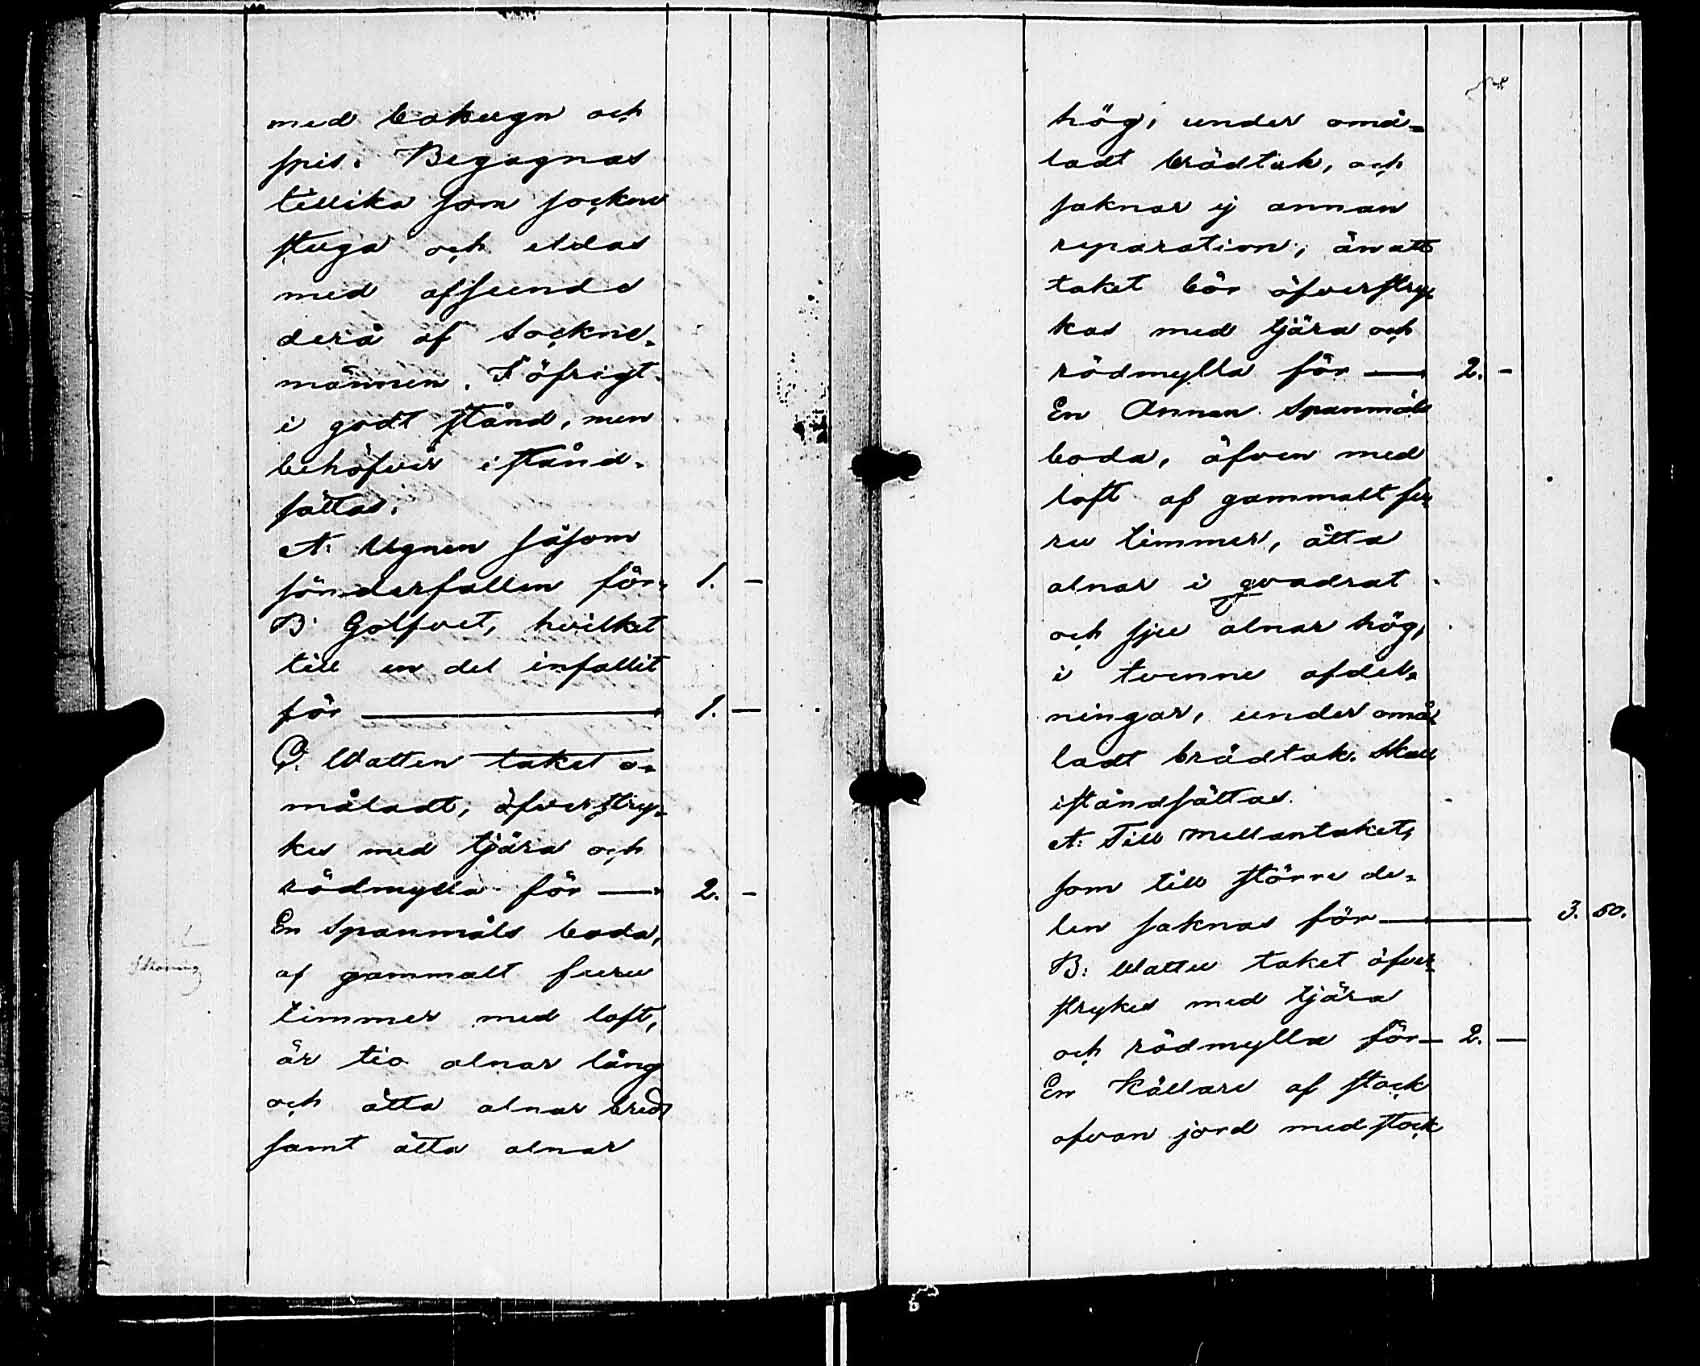 med bakugn och
spis. Begagnas
tillika som sockne
stuga och eldas
med afseende
derå af Sockne-
männen. I öfrigt
i godt stånd, men
behöfver istånd-
sättas.
A: Ugnen såsom
sönderfallen för- 1. —
B: Golfvet, hvilket
till en del infallit
för — 1. —
C: Watten taket o-
måladt, öfverstry-
kes med tjära och
rödmylla för — 2. —
En Spanmåls boda,
af gammalt furu
timmer med loft,
är tio alnar lång
och åtta alnar bred
samt åtta alnar
hög, under omå-
ladt brädtak, och
saknar ej annan
reparation, än att
taket bör öfverstry-
kas med tjära och
rödmylla för — 2. —
En Annan Spanmåls
boda, äfven med
loft af gammalt fu-
ru timmer, åtta
alnar i qvadrat
och sju alnar hög,
i tvenne afdel-
ningar, under omå-
ladt brädtak. Skall
iståndsättas.
A: Till mellantaket,
som till större de-
len saknas för — 3. 50.
B: Watten taket öfver-
strykes med tjära
och rödmylla för — 2. —
En Källare af stock
ofvan jord med stock